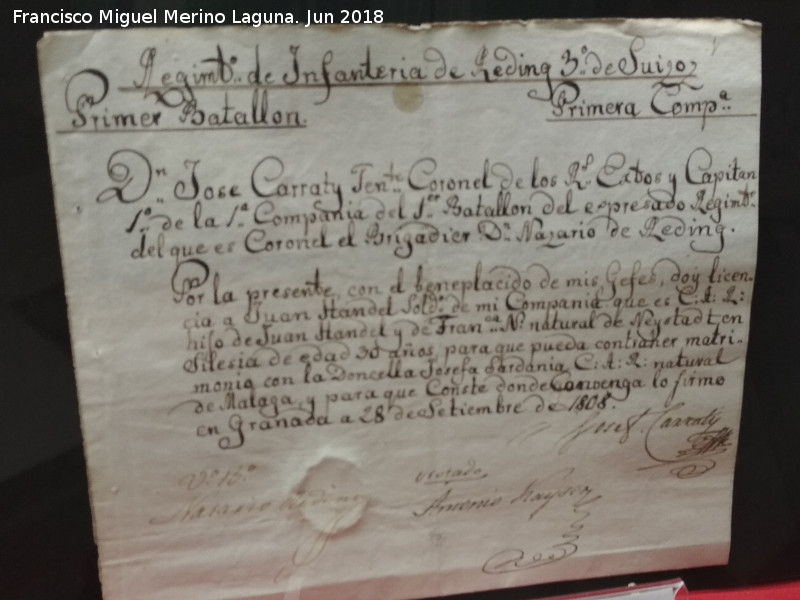 Francisco Miguel Merino Laguna. Jun 2018
Regimto. de Infanteria de Reding 3º. de Suizos
Primer Batallon. Primera Compª.
Dn. Jose Carraty Tente. Coronel de los Rs. Extos y Capitan
1º. de la 1ª. Compañia del 1er. Batallon del expresado Regimto.
del que es Coronel el Brigadier Dn. Nazario de Reding.
Por la presente, con el beneplacido de mis Gefes, doy licen-
cia a Juan Handel Soldo. de mi Compania que es C: A: R:
hijo de Juan Handel y de Franca. N. natural de Neystadt en
Silesia de edad 30 años, para que pueda contraher matri-
monio con la Doncella Josefa Sardania C: A: R: natural
de Malaga, y para que Conste donde Convenga lo firmo
en Granada a 28 de Setiembre de 1808.
Josef. Carraty
Vº. Bº. 
Nazario Reding
Antonio Kayser